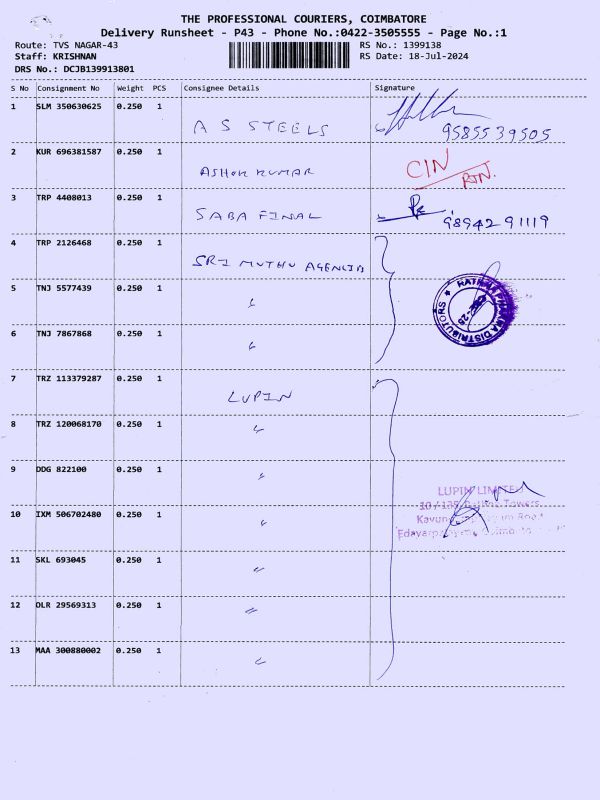 THE PROFESSIONAL COURIERS, COIMBATORE
Delivery Runsheet - P43 - Phone No.:0422-3505555 - Page No.:1
Route: TVS NAGAR-43 RS No.: 1399138
Staff: KRISHNAN RS Date: 18-Jul-2024
DRS No.: DCJB139913801
S No Consignment No Weight PCS Consignee Details Signature
1 SLM 350630625 0.250 1
A S STEELS 9585539505
2 KUR 696381587 0.250 1
ASHOK KUMAR CIN RTN.
3 TRP 4408013 0.250 1
SABA FINAL 98942 91119
4 TRP 2126468 0.250 1
SRI MUTHU AGENCIES
5 TNJ 5577439 0.250 1
"
6 TNJ 7867868 0.250 1
"
DISTRIBUTORS
7 TRZ 113379287 0.250 1
LUPIN
8 TRZ 120068170 0.250 1
"
9 DDG 822100 0.250 1
"
LUPIN LIMITED
Towers
10 IXM 506702480 0.250 1
"
Road
11 SKL 693045 0.250 1
"
12 DLR 29569313 0.250 1
"
13 MAA 300880002 0.250 1
"